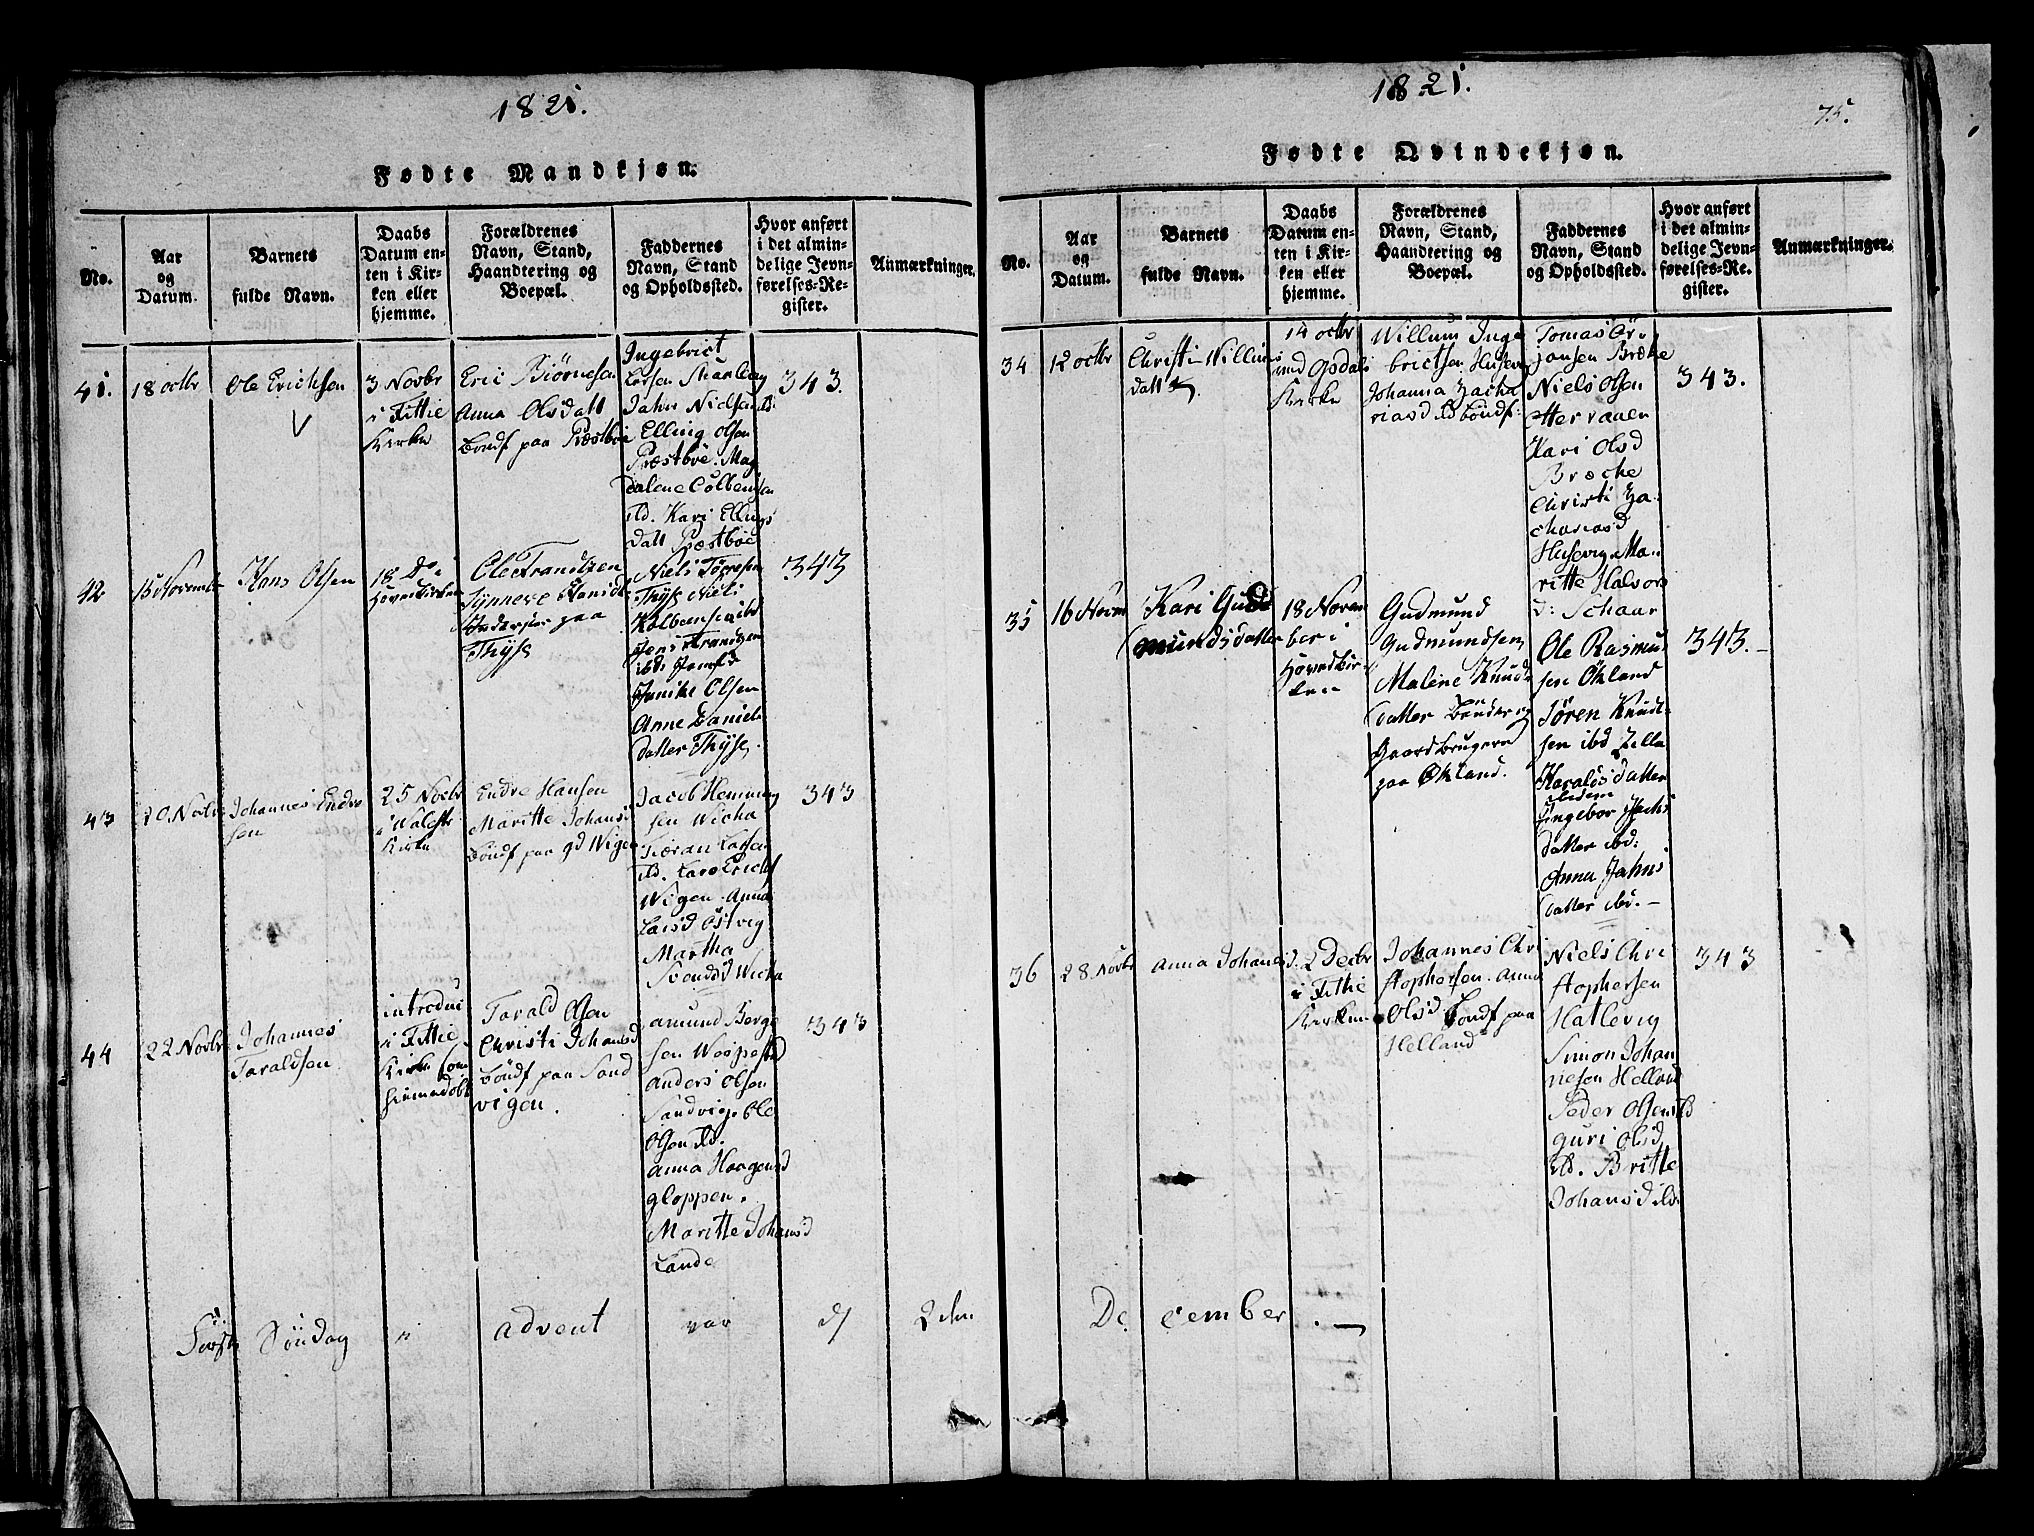 1821.
Fødte Mandkjøn.
No.
Aar
og
Datum.
Barnets
fulde Navn.
Daabs
Datum en-
ten i Kir-
ken eller
hjemme.
Forældrenes
Navn, Stand,
Haandtering og
Boepæl.
Faddernes
Navn, Stand
og Opholdssted.
Hvor anført
i det almin-
delige Jevn-
førelses-Re-
gister.
Anmærkninger.
41.
18 octbr
Ole Erichsen
3 Novbr
i Fittie
Kirke
Eric Biörnesen
Anna Olsdatt
Böndf paa Præstböe
Ingebrict
Larsen
Jahn Nielsen
Elling Olsen
Præstböe. Mag
dalene
Kari Ellings
datt Præstböe
343.
42
15 Novembr
Hans Olsen
18 Do i
Hovedkirken
Ole Frandtzen
Synneve Danield
paa
Thÿse
Niels Törresen
Thÿse Niels
Kolbensen ibd
Jens Frandtzen
ibd
Olsen
Anne Daniels
datter Thÿse.
343
43
20. Novbr
Johannes Endre
sen
25 Novbr
i Walestr
Kirke
Endre Hansen
Maritte Johansd
Böndf paa gd Wigen
Jacob Hemming
sen Wicha
Larsen
ibd. Lars Erichs
Wigen. Anna
Larsd Östvig
Martha
Svendsd Wicha
343
44
22 Novbr
Johannes
Taraldsen
introdue
i Fittie
Kirke
Tarald Olsen
Christi Johansd
Böndf paa Sand
vigen.
Amund Berge
sen Wespestad
Anders Olsen
Sandvig. Ole
Olsen ibd.
Anna Haagensd
gloppen.
Maritte Johansd
Lande
343
Förste Söndag i advent var d 2den
1821.
75.
Fødte Qvindekjøn.
No.
Aar
og
Datum.
Barnets
fulde Navn.
Daabs
Datum en-
ten i Kir-
ken eller
hjemme.
Forældrenes
Navn, Stand,
Haandtering og
Boepæl.
Faddernes
Navn, Stand
og Opholdssted.
Hvor anført
i det almin-
delige Jevn-
førelses-Re-
gister.
Anmærkninger.
34
12 octbr
Christi Willums
datter
14 octbr
ved Opdals
Kirke
Willum Inge
brictsen Husevig
Johanna Zacha
riasd Böndf:
Tomas Ör
jansen Bræke
Niels Olsen
Kari Olsd
Bræcke
Christi Za
chariasd
Husevig. Ma-
ritte Halvors
d: Schaar
343.
35
16 Novm
Kari Gud
mundsdatter
18 Novem
ber i
Hovedkir-
ken
Gudmund
Gudmundsen
Malene Knuds
datter Bönder og
Gaardbrugere
paa Økland.
Ole Rasmus
sen Økland
Sören Knud-
sen ibd Zilla
Haraldsdatter
ibidem
Ingebor Jachs
datter ibd:
Anna Jahns
datter ibd. -
343. -
36
28. Novbr
Anna Johansd.
2 Decbr
i Fittie
Kirken
Johannes Chri
stophersen. Anna
Olsd Böndf paa
Helland
Niels Chri
stophersen
Hatlevig
Simon Johan
nesen Helland
Peder Olsen ib
guri Olsd
ibd. Britte
Johansd ibd
343
De cember . -